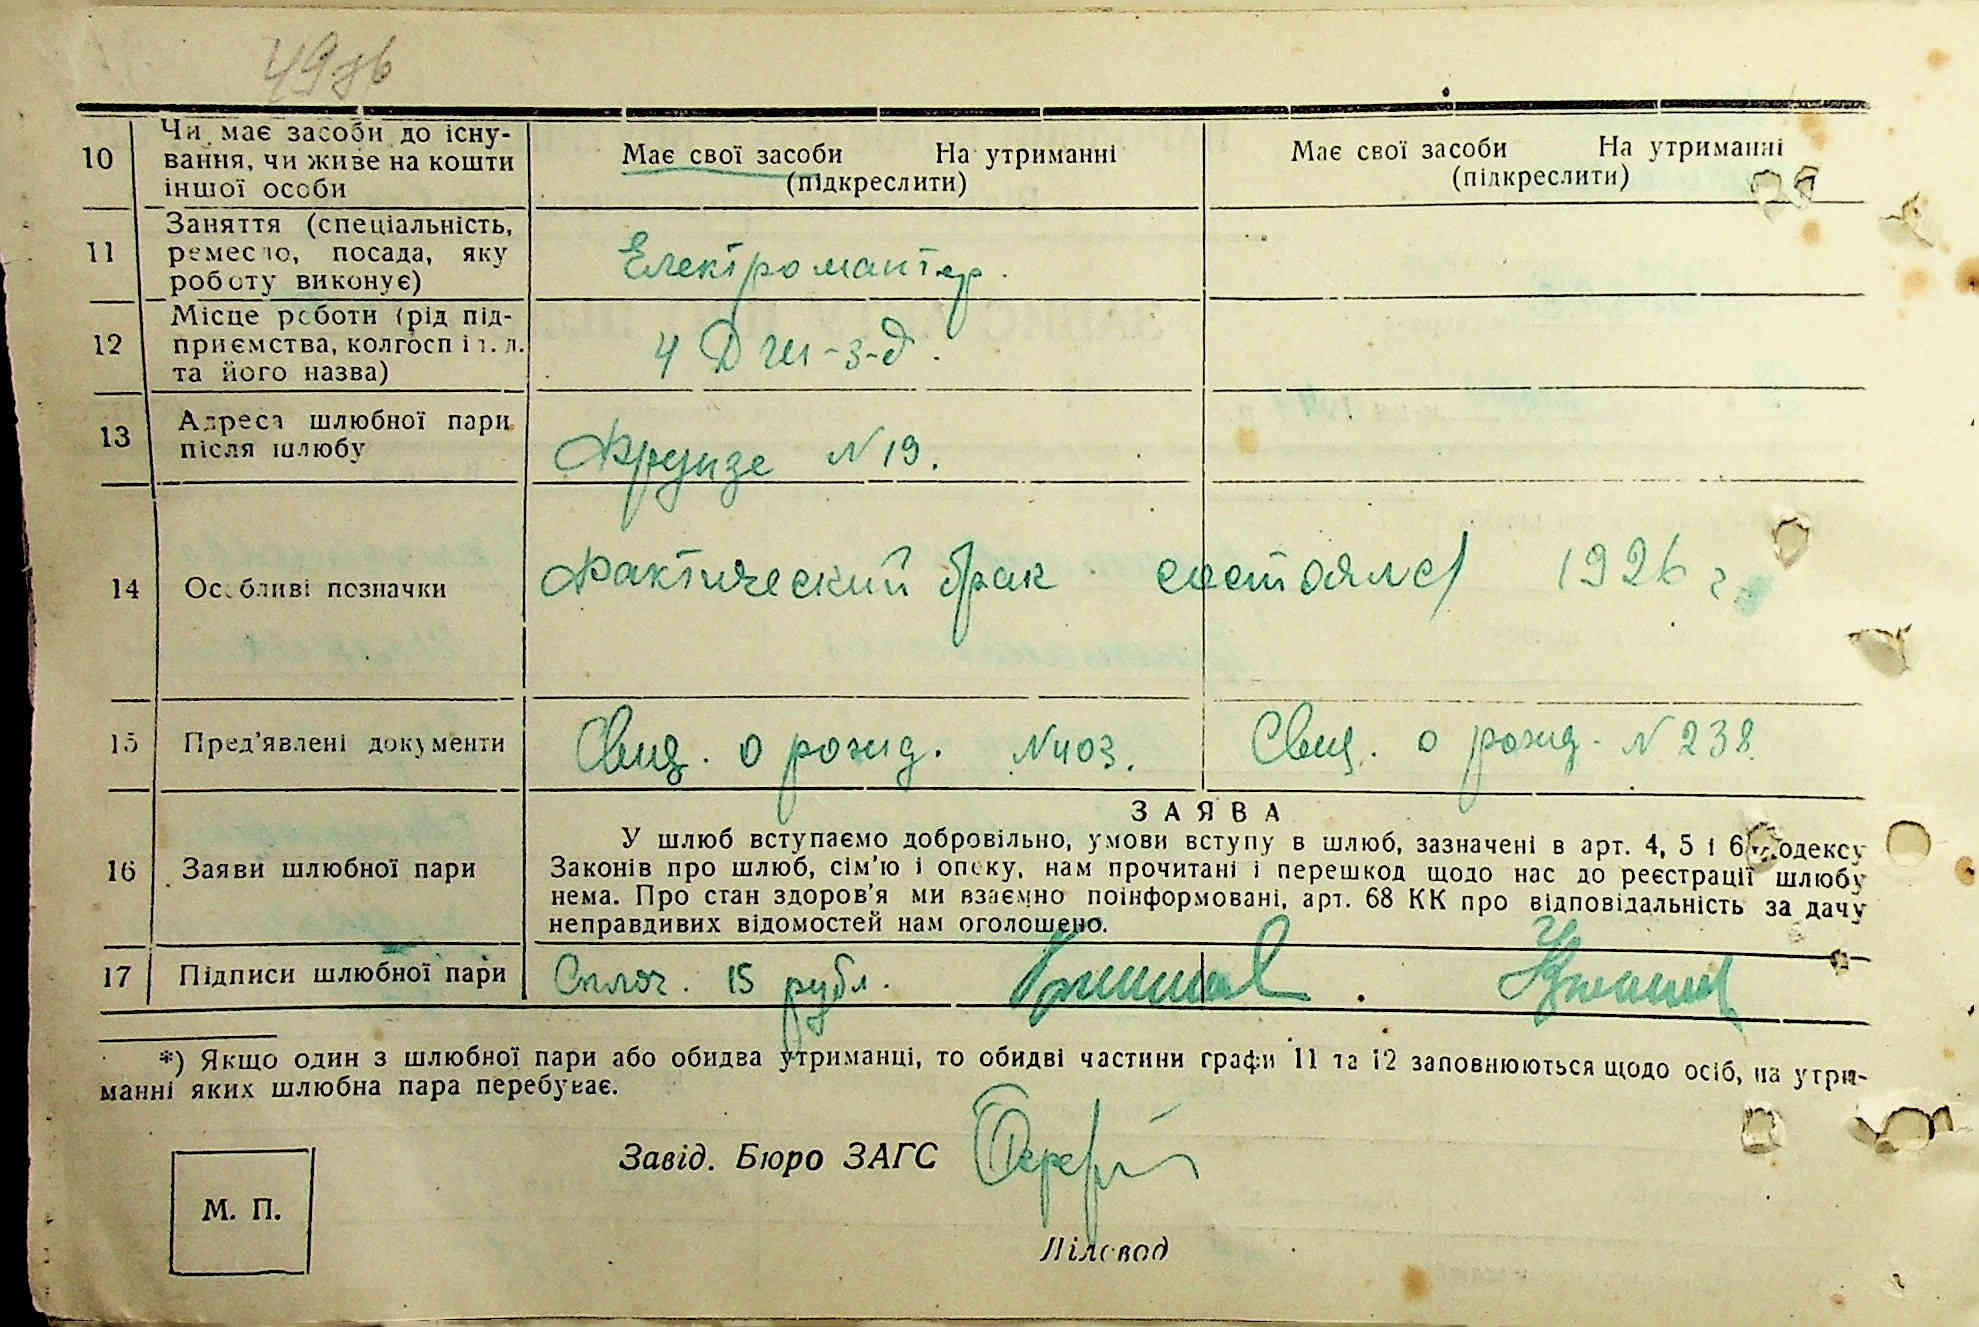 49зв
10 Чи має засоби до існу-
вання, чи живе на кошти
іншої особи
Має свої засоби На утриманні
(підкреслити)
Має свої засоби На утриманні
(підкреслити)
11 Заняття (спеціальність,
ремесло, посада, яку
роботу виконує)
Електромантер.
12 Місце роботи (рід під-
приємства, колгосп і т. л.
та його назва)
4 Д
13 Адреса шлюбної пари
після шлюбу
Фрунзе N 19.
14 Особливі позначки
Фактический брак состоялся 1926 г
15 Пред'явлені документи
Свид. о рожд. N 403.
Свид. о рожд. N 238
16 Заяви шлюбної пари
ЗАЯВА
У шлюб вступаємо добровільно, умови вступу в шлюб, зазначені в арт. 4, 5 і 6 Кодексу
Законів про шлюб, сім'ю і опску, нам прочитані і перешкод щодо нас до реєстрації шлюбу
нема. Про стан здоров'я ми взаємно поінформовані, арт. 68 КК про відповідальність за дачу
неправдивих відомостей нам оголошено.
17 Підписи шлюбної пари
15 рубл.
*) Якщо один з шлюбної пари або обидва утриманці, то обидві частини графи 11 та 12 заповнюються щодо осіб, на утри-
манні яких шлюбна пара перебуває.
Завід. Бюро ЗАГС
М. П.
Діловод